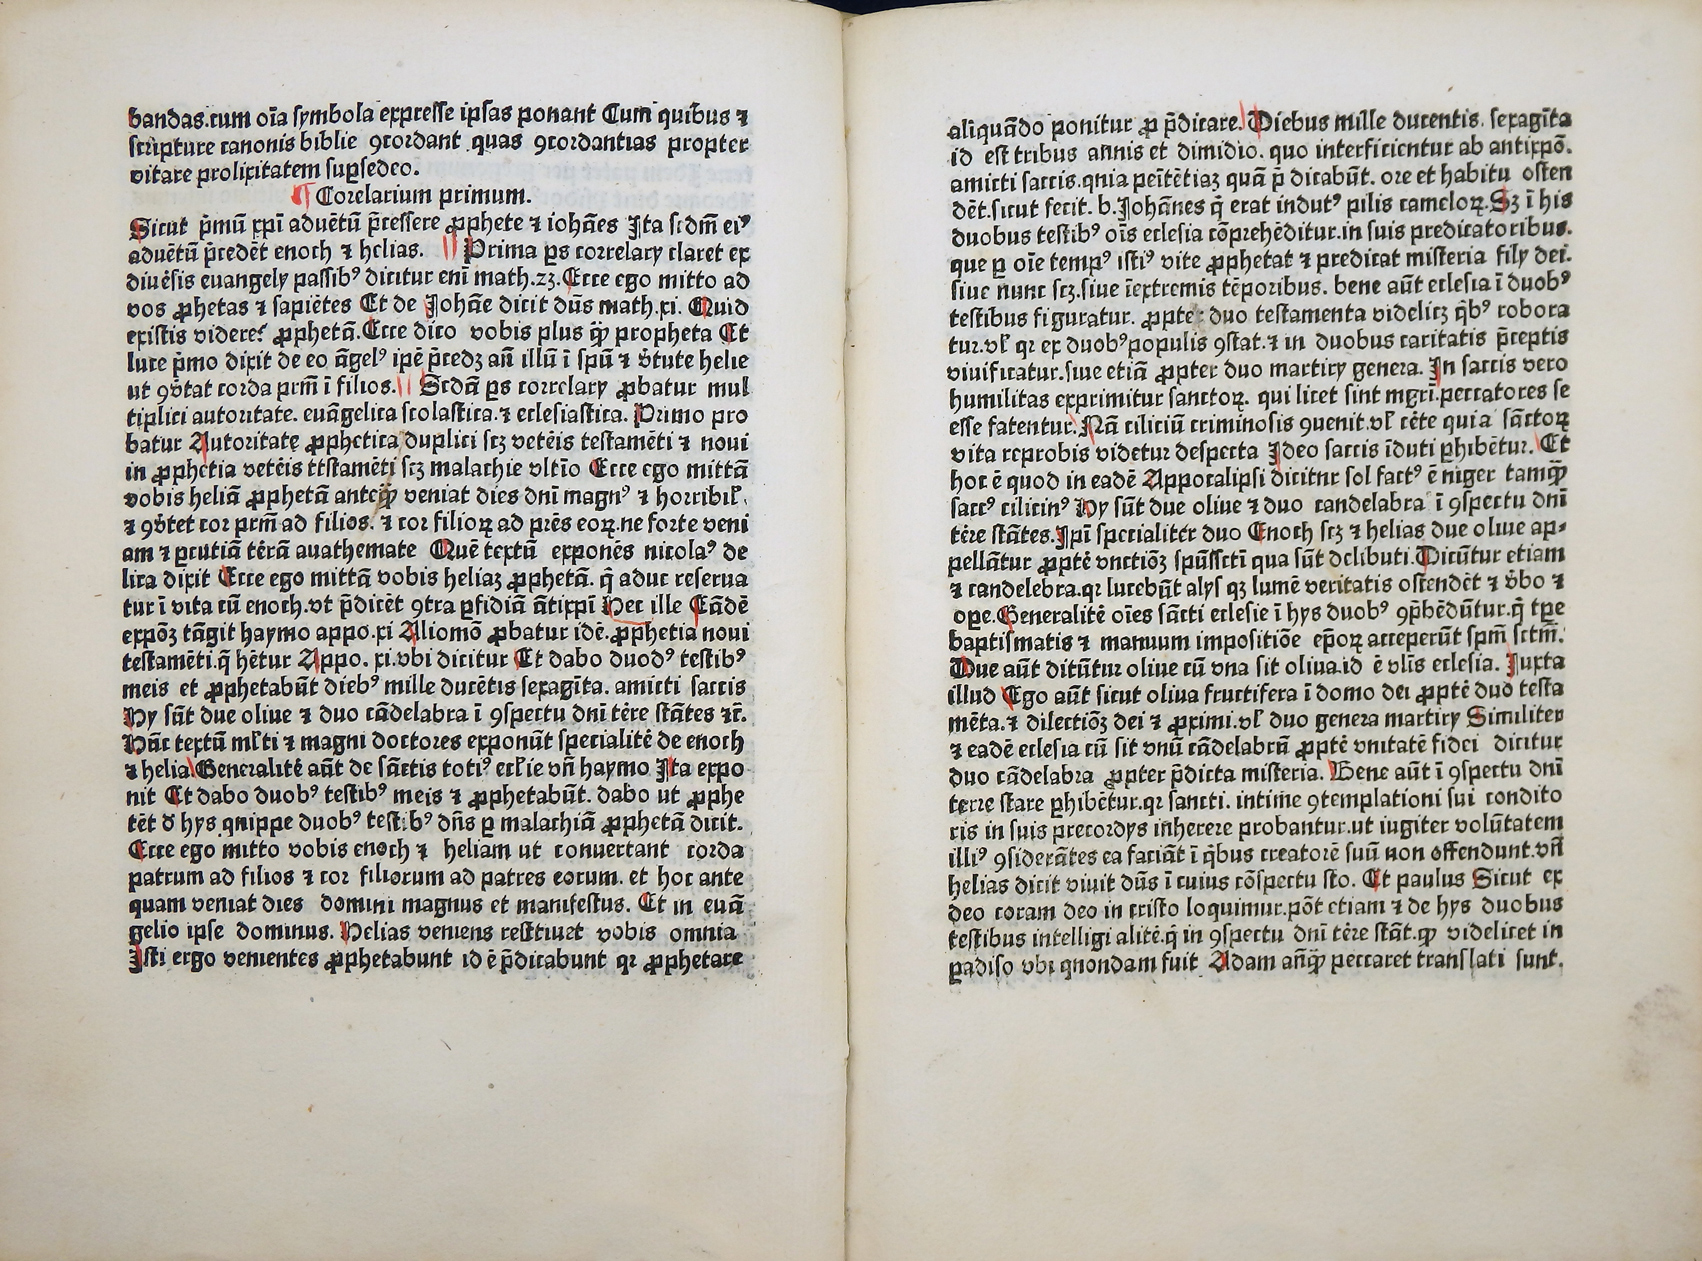 bandas.cum oīa symbola expresse ipsas ponant Cum quibus ⁊
scripture canonis biblie ꝯcordant quas ꝯcordantias propter
vitare prolixitatem suꝑsedeo.
¶ Corelarium primum.
Sicut p̄mū xp̄i aduētū p̄cessere ꝓphete ⁊ iohāes Ita scdm̄ eiꝰ
aduētū p̄cedēt enoch ⁊ helias. Prima ꝑs correlary claret ex
diuėsis euangely passibꝰ dicitur eni math.23.Ecce ego mitto ad
vos ꝓphetas ⁊ sapiētes Et de Johāe dicit dūs math.xi. Quid
existis videre? ꝓphetā.Ecce dico vobis plus qꝫ̄ propheta Et
luce p̄mo dixit de eo āgelꝰ ipē p̄cedꝫ an̄ illū ī spū ⁊ v̄tute helie
ut ꝯv̄tat corda prm̄ ī filios. Scdā ꝑs correlary ꝓbatur mul
tiplici autoritate. euāgelica scolastica.⁊ eclesiastica. Primo pro
batur Autoritate ꝓphetica duplici scꝫ vetėis testamēti ⁊ noui
in ꝓphetia vetėis ttstamēti scꝫ malachie vltīo Ecce ego mittā
vobis heliā ꝓphetā anteqꝫ̄ veniat dies dnī magnꝰ ⁊ horribil̄.
⁊ ꝯv̄tet cor prm̄ ad filios. ⁊ cor filioꝝ ad prēs eoꝝ.ne forte veni
am ⁊ ꝑcutiā tėrā auathemate Quē textū exponēs nicolaꝰ de
lira dixit Ecce ego mittā vobis heliaꝫ ꝓphetā. q̄ aduc reserua
tur ī vita cū enoch.vt p̄dicēt ꝯtra ꝑfidiā ātixpī Hec ille Eādē
expōꝫ tāgit haymo appo.xi Aliomō ꝓbatur idē.ꝓphetia noui
testamēti.q̄ hētur Appo. xi.vbi dicitur Et dabo duodꝰ testibꝰ
meis et ꝓphetabūt diebꝰ mille ducētis sexagīta. amicti saccis
Hy sūt due oliue ⁊ duo cādelabra ī ꝯspectu dnī tėre stātes ⁊c̄.
Hūc textū ml̄ti ⁊ magni doctores exponūt specialitė de enoch
⁊ helia.Generalitė aūt de sāctis totiꝰ ecl̄ie vn̄ haymo Ita expo
nit Et dabo duobꝰ testibꝰ meis ⁊ ꝓphetabūt. dabo ut ꝓphe
tēt d̄ hys qnippe duobꝰ testibꝰ dn̄s ꝑ malachiā ꝓphetā dicit.
Ecce ego mitto vobis enoch ⁊ heliam ut conuertant corda
patrum ad filios ⁊ cor filiorum ad patres eorum. et hoc ante
quam veniat dies domini magnus et manifestus. Et in euā
gelio ipse dominus. Helias veniens restituet vobis omnia
Isti ergo venientes ꝓphetabunt id ē p̄dicabunt qꝛ ꝓphetare
aliquādo ponitur ꝓ p̄dicare. Diebus mille ducentis. sexagīta
id est tribus annis et dimidio. quo interficientur ab antixpō.
amicti saccis.qnia peītētiaꝫ quā p̄ dicabūt. ore et habitu osten
dēt.sicut fecit. b.Johānes q̄ erat indutꝰ pilis cameloꝝ.Sꝫ ī his
duobus testibꝰ oīs eclesia cōprehēditur.in suis predicatoribus.
que ꝑ oīe tempꝰ istiꝰ vite ꝓphetat ⁊ predicat misteria fily dei.
siue nunc scꝫ.siue īextremis tēporibus. bene aūt eclesia ī duobꝰ
testibus figuratur. ꝓpter duo testamenta videlicꝫ q̄bꝰ robora
tur.vl̄ qꝛ ex duobꝰpopulis ꝯstat.⁊ in duobus caritatis p̄ceptis
viuificatur.siue etiā ꝓpter duo martiry genera. In saccis vero
humilitas exprimitur sanctoꝝ. qui licet sint mgri.peccatores se
esse fatentur.Nā ciliciū criminosis ꝯuenit.vl̄ cėte quia sāctoꝝ
vita reprobis videtur despecta Ideo saccis īduti ꝑhibētur. Et
hoc ē quod in eadē Appocalipsi dicitnr sol factꝰ ē niger tamqꝫ̄
saccꝰ cilicinꝰ Hy sūt due oliue ⁊ duo candelabra ī ꝯspectu dnī
tėre stātes.Ipī specialitėr duo Enoch scꝫ ⁊ helias due oliue ap⸗
pellātur ꝓptė vnctiōꝫ spūssctī qua sūt delibuti.Dicūtur etiam
⁊ candelebra.qꝛ lucebūt alys qꝫ lumē veritatis ostendēt ⁊ v̄bo ⁊
oꝑe.Generalitė oīes sācti eclesie ī hys duobꝰ ꝯp̄hēdūtur.q̄ tꝑe
baptismatis ⁊ manuum impositiōe ep̄oꝝ acceperūt spm̄ sctm̄.
Due aūt dicūtur oliue cū vna sit oliua.id ē vl̄is eclesia. Juxta
illud Ego aūt sicut oliua fructifera ī domo dei ꝓptė duo testa
mēta.⁊ dilectiōꝫ dei ⁊ ꝓximi.vl̄ duo genera martiry Similiter
⁊ eadē eclesia cū sit vnū cādelabrū ꝓptė vnitatē fidei dicitur
duo cādelabra ꝓpter p̄dicta misteria. Bene aūt ī ꝯspectu dnī
terre stare ꝑhibētur.qꝛ sancti. intime ꝯtemplationi sui condito
ris in suis precordys inherere probantur.ut iugiter volūtatem
illiꝰ ꝯsiderātes ea faciāt ī q̄bus creatorē suū non offendunt.vn̄
helias dicit viuit dūs ī cuius cōspectu sto. Et paulus Sicut ex
deo coram deo in cristo loquimur.pōt etiam ⁊ de hys duobus
testibus intelligi alitė.q̄ in ꝯspectu dnī tėre stāt.qꝫ videlicet in
ꝑadiso vbi qnondam fuit Adam an̄qꝫ̄ peccaret translati sunt.